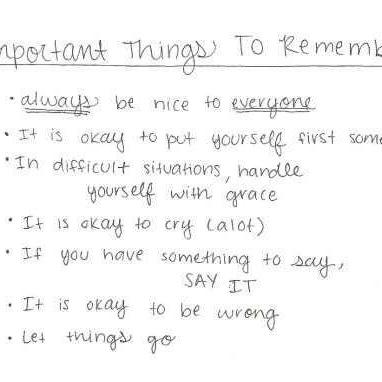 mportant Things To Rememb
• always be nice to everyone
• It is okay to put yourself first some
• In difficult situations, handle
yourself with grace
• It is okay to cry (alot)
• If you have something to say,
SAY IT
• It is okay to be wrong
• Let things go